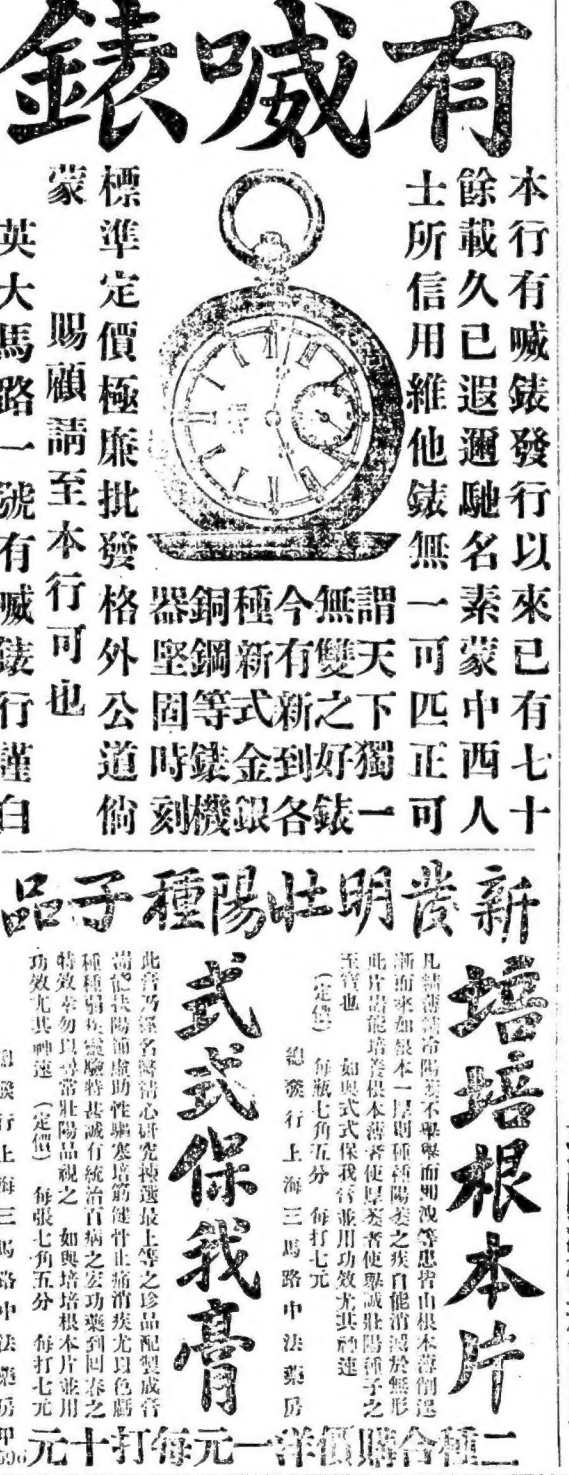 有嘁錶
本行有嘁錶發行以來已有七十
餘載久已遐邇馳名素蒙中西人
士所信用維他錶無一可匹正可
謂天下獨一
無雙之好錶
今有新到各
種新式金銀
銅鋼等錶機
器堅固時刻
標準定價極廉批發格外公道倘
蒙
賜顧請至本行可也
英大馬路一號有嘁錶行謹白
新發明壯陽種子品
培培根本片
不舉舉而即洩等患皆由根本薄削逐
漸而來如根本一厚則種種陽萎之疾自能消滅於無形
此片最能培養根本薄者使厚萎者使舉誠壯陽種子之
至寶也 如與式式保我膏並用功效尤其神速
(定價) 每瓶七角五分 每打七元
總發行上海三馬路中法藥房
式式保我膏
此膏乃經名醫清心研究揀選最上等之珍品配製成膏
種種弱疾靈驗特甚誠有統治百病之宏功藥到回春之
特效幸勿以尋常壯陽品視之 如與培培根本片並用
功效尤其神速 (定價) 每張七角五分 每打七元
總發行上海三馬路中法藥房
二種合購價洋一元每打十元